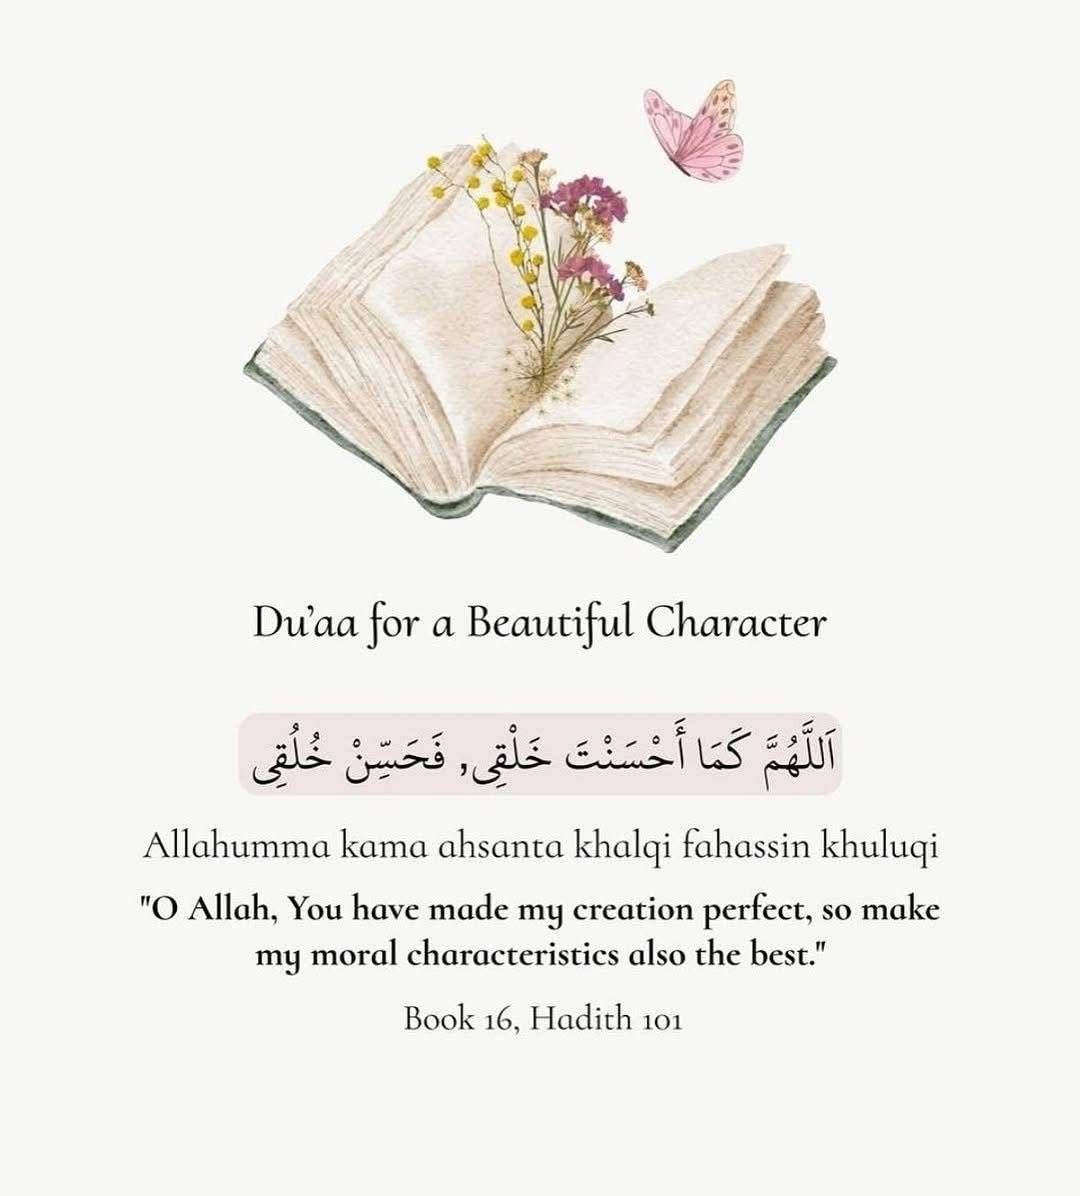 Du’aa for a Beautiful Character
اَللَّهُمَّ كَمَا أَحْسَنْتَ خَلْقِى, فَحَسِّنْ خُلُقِى
Allahumma kama ahsanta khalqi fahassin khuluqi
"O Allah, You have made my creation perfect, so make
my moral characteristics also the best."
Book 16, Hadith 101